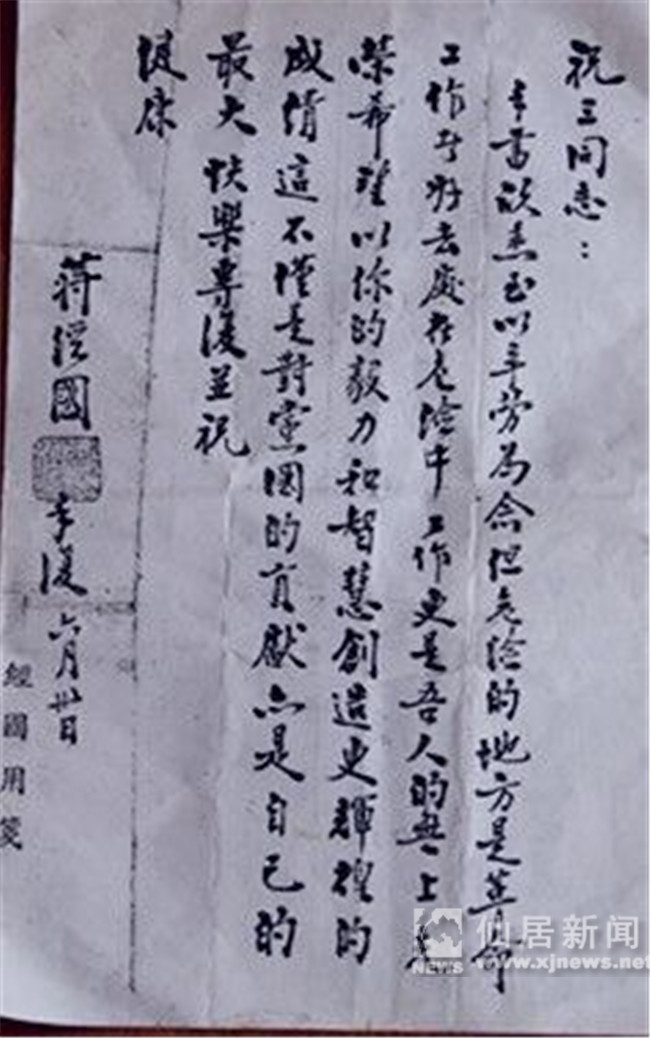 祝三同志：
手書誦悉至以辛勞為念但危險的地方是革命
工作者好去處在危險中工作更是吾人的無上光
榮希望以你的毅力和智慧創造更輝煌的
成績這不僅是對黨國的貢獻亦是自己的
最大快樂專復並祝
健康
蔣經國
手復 六月卅日
經國用箋
仙居新闻
NEWS www.xjnews.net